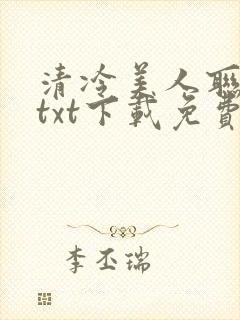 清冷美人聯
txt下載免費
李丕瑞